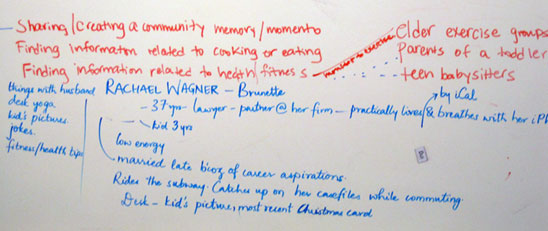 Sharing/creating a community memory/momento
Finding information related to cooking or eating
Finding information related to health/fitness
Elder exercise groups
Parents of a toddler
teen babysitters
things with husband
desk yoga
kid's pictures.
jokes.
fitness/health tips
RACHAEL WAGNER – Brunette
by iCal
– 37 yrs – lawyer – partner @ her firm – practically lives & breathes with her iPh
kid 3 yrs
low energy
married late bcoz of career aspirations.
Rides the subway. Catches up on her casefiles while commuting.
Desk – kid's picture, most recent Christmas card